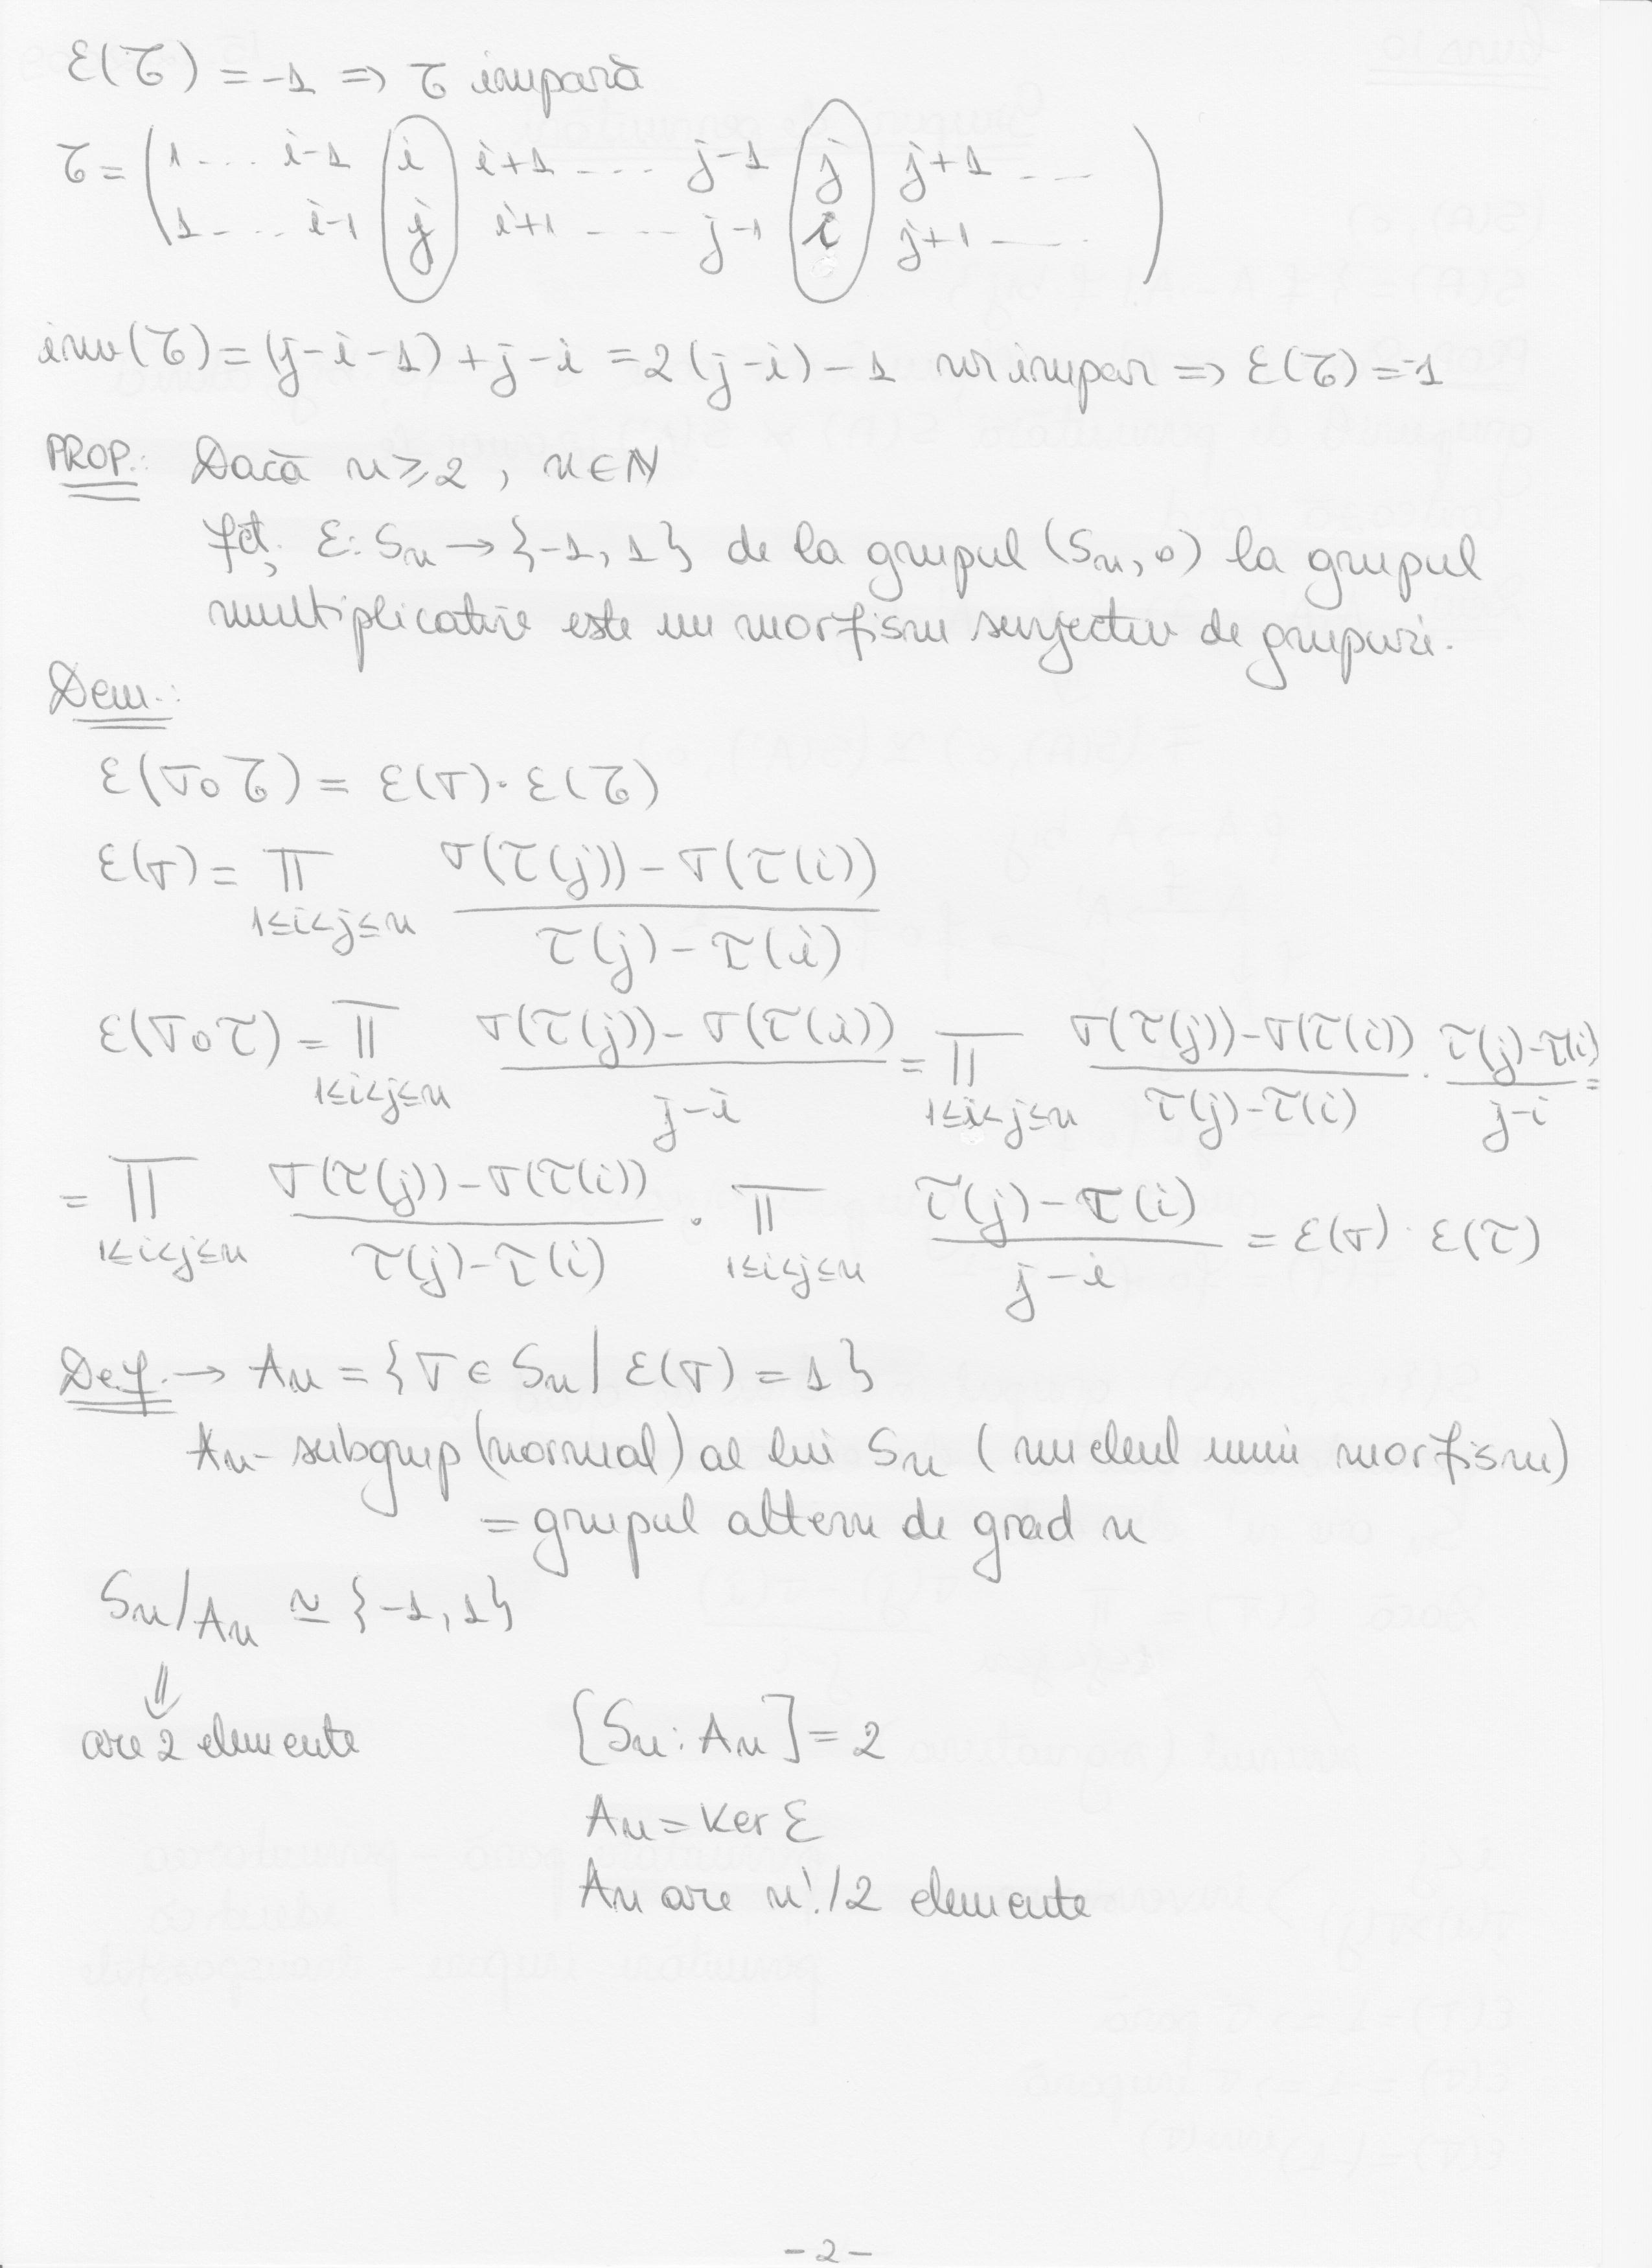 ε(τ) = -1 => τ impară
τ = ( 1 .... i-1 i i+1 .... j-1 j j+1 ....
1 .... i-1 j i+1 ..... j-1 i j+1 ..... )
inv(τ) = (j-i-1) + j-i = 2(j-i) - 1 nr impar => ε(τ) = -1
PROP.: Dacă n ≥ 2, n ∈ ℕ
fcț. ε: Sn → {-1, 1} de la grupul (Sn, o) la grupul
multiplicativ este un morfism surjectiv de grupuri.
Dem.:
ε(σ o τ) = ε(σ) · ε(τ)
ε(σ) = ∏ 1≤i<j≤n (σ(τ(j)) - σ(τ(i))) / (τ(j) - τ(i))
ε(σ o τ) = ∏ 1≤i<j≤n (σ(τ(j)) - σ(τ(i))) / (j-i) = ∏ 1≤i<j≤n (σ(τ(j)) - σ(τ(i))) / (τ(j) - τ(i)) · (τ(j) - τ(i)) / (j-i) =
= ∏ 1≤i<j≤n (σ(τ(j)) - σ(τ(i))) / (τ(j) - τ(i)) · ∏ 1≤i<j≤n (τ(j) - τ(i)) / (j-i) = ε(σ) · ε(τ)
Def. → An = {σ ∈ Sn | ε(σ) = 1}
An - subgrup (normal) al lui Sn (nucleul unui morfism)
= grupul altern de grad n
Sn/An ≃ {-1, 1}
⇓
are 2 elemente [Sn : An] = 2
An = Ker ε
An are n!/2 elemente
- 2 -